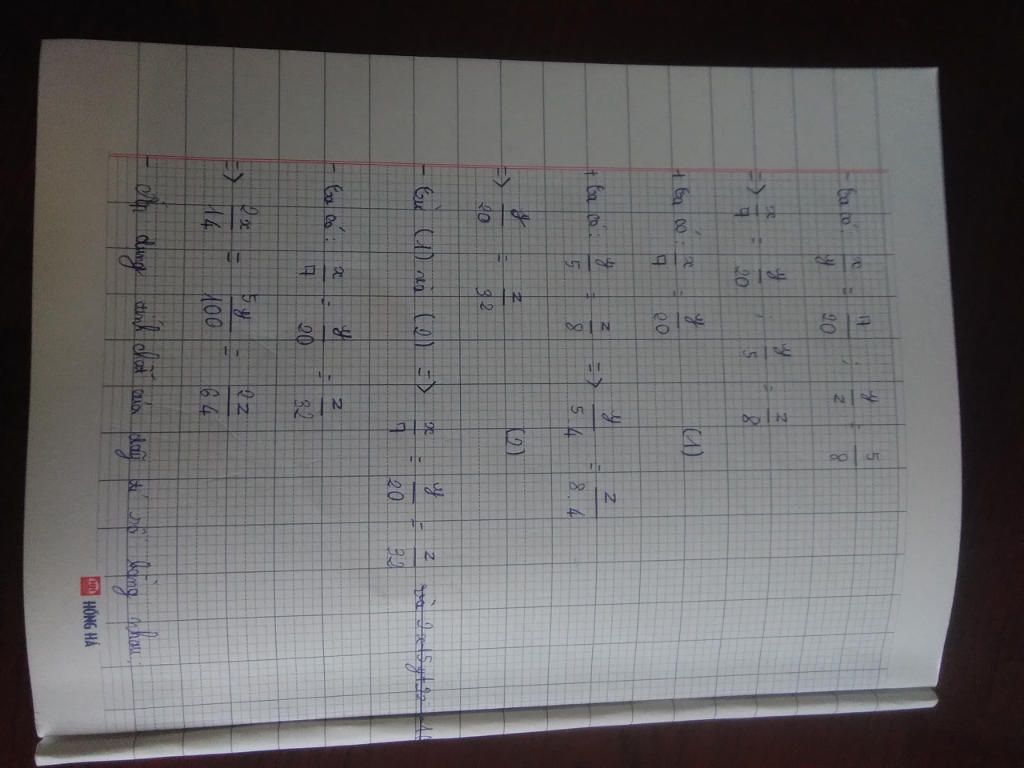 - Ta có: x/y = 7/20 ; y/z = 5/8
=> x/7 = y/20 ; y/5 = z/8
+ Ta có: x/7 = y/20 (1)
+ Ta có: y/5 = z/8 => y/5.4 = z/8.4
=> y/20 = z/32 (2)
- Từ (1) và (2) => x/7 = y/20 = z/32 và 2x+5y+2z
- Ta có: x/7 = y/20 = z/32
=> 2x/14 = 5y/100 = 2z/64
- Áp dụng tính chất của dãy tỉ số bằng nhau:
HỒNG HÀ